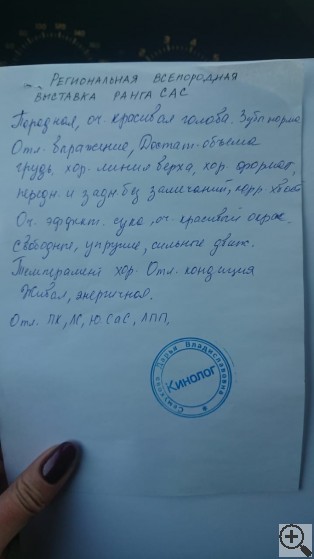 Региональная всепородная
выставка ранга САС
Породная, оч. красивая голова. Зубы норма
Отл. выражение, Достат. объема
грудь, хор. линия верха, хор. формат,
передн. и задн. без замечаний, корр. хвост
Оч. эффект. сука, оч. красивый окрас.
Свободные, упругие, сильные движ.
Темперамент хор. Отл. кондиция
Живая, энергичная.
Отл. ЛК, ЛС, Ю.САС, ЛПП,
Кинолог
Дарья Владиславовна